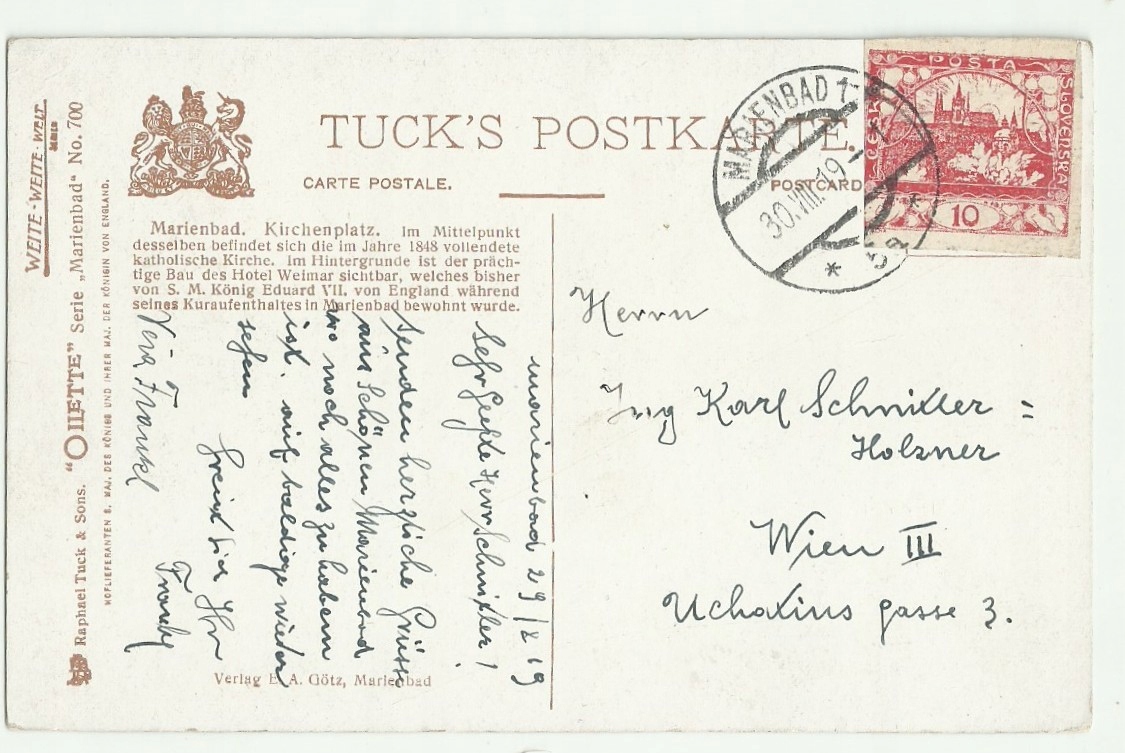 WEITE-WEITE-WELT
Raphael Tuck & Sons. "OILETTE" Serie „Marienbad" No. 700
HOFLIEFERANTEN S. MAJ. DES KÖNIGS UND IHRER MAJ. DER KÖNIGIN VON ENGLAND.
TUCK'S POSTKARTE.
CARTE POSTALE.
POSTCARD
Marienbad. Kirchenplatz. Im Mittelpunkt
desselben befindet sich die im Jahre 1848 vollendete
katholische Kirche. Im Hintergrunde ist der präch-
tige Bau des Hotel Weimar sichtbar, welches bisher
von S. M. König Eduard VII. von England während
seines Kuraufenthaltes in Marienbad bewohnt wurde.
MARIENBAD 1
30.VIII.19
5a
POSTA
ČESKO
SLOVENSKÁ
10
Marienbad 29/8 19
Sehr Geehrte Herr Schnitzler!
Senden herzliche Grüsse
aus Schönen Marienbad
wo noch alles zu haben
ist. auf baldige wieder
sehen
Ihr
Vera Frankl
Herrn
Ing Karl Schnitzer =
Holzner
Wien III
Uchatius gasse 3.
Verlag E. A. Götz, Marienbad